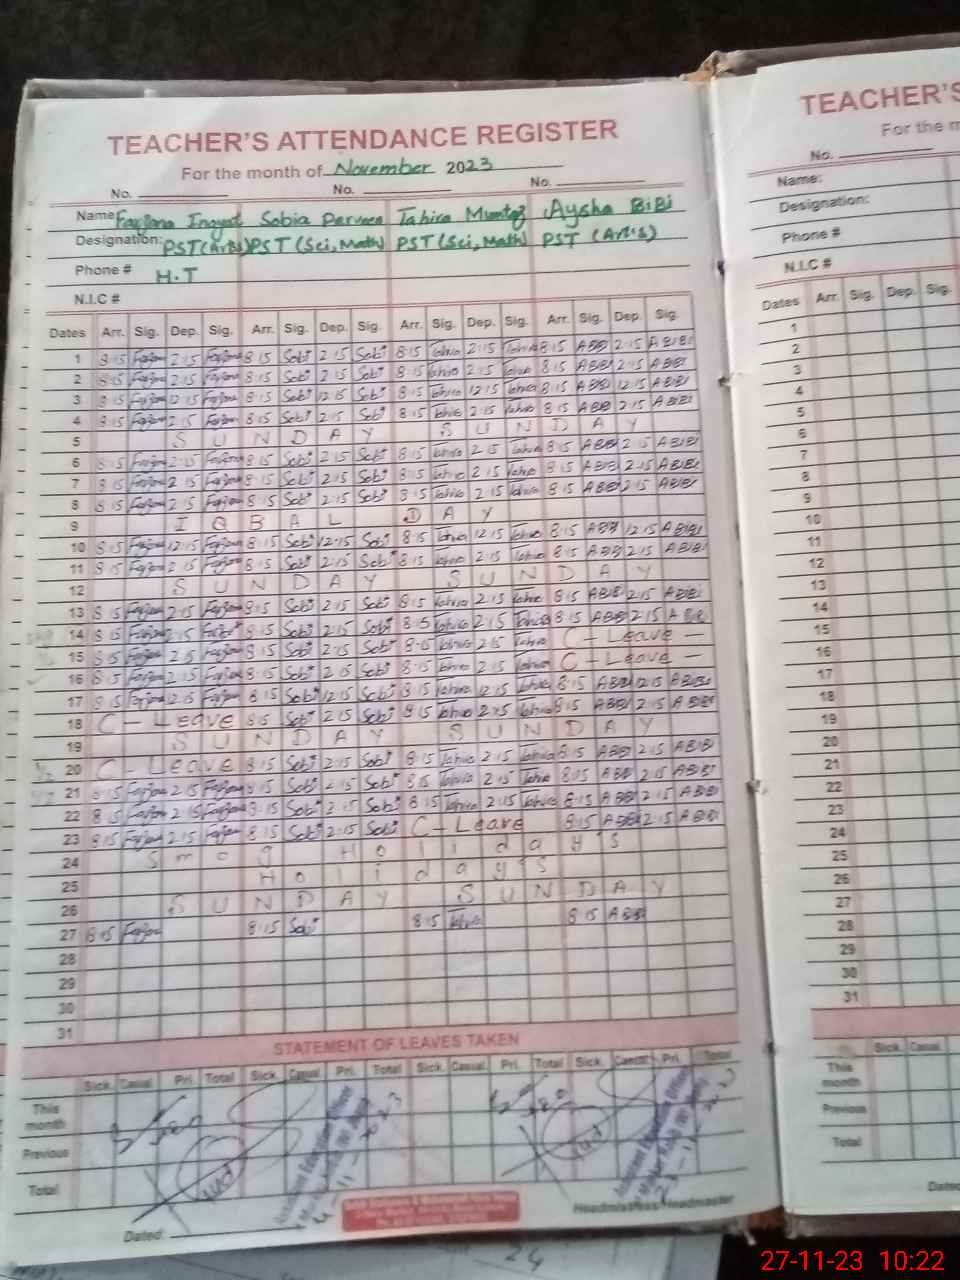 TEACHER'S ATTENDANCE REGISTER
For the month of November 2023
No. No. No.
Name: Farjana Inayat Sobia Parveen Tahira Mumtaz Aysha BiBi
Designation: PST(Arts) PST (Sci, Math) PST (Sci, Math) PST (Arts)
Phone # H.T
N.I.C #
Dates Arr. Sig. Dep. Sig. Arr. Sig. Dep. Sig. Arr. Sig. Dep. Sig. Arr. Sig. Dep. Sig.
1 8:15 Farjana 2:15 Farjana 8:15 Sobi 2:15 Sobi 8:15 Tahira 2:15 Tahira 8:15 ABIBI 2:15 ABIBI
2 8:15 Farjana 2:15 Farjana 8:15 Sobi 2:15 Sobi 8:15 Tahira 2:15 Tahira 8:15 ABIBI 2:15 ABIBI
3 8:15 Farjana 12:15 Farjana 8:15 Sobi 12:15 Sobi 8:15 Tahira 12:15 Tahira 8:15 ABIBI 12:15 ABIBI
4 8:15 Farjana 2:15 Farjana 8:15 Sobi 2:15 Sobi 8:15 Tahira 2:15 Tahira 8:15 ABIBI 2:15 ABIBI
5 SUNDAY SUNDAY
6 8:15 Farjana 2:15 Farjana 8:15 Sobi 2:15 Sobi 8:15 Tahira 2:15 Tahira 8:15 ABIBI 2:15 ABIBI
7 8:15 Farjana 2:15 Farjana 8:15 Sobi 2:15 Sobi 8:15 Tahira 2:15 Tahira 8:15 ABIBI 2:15 ABIBI
8 8:15 Farjana 2:15 Farjana 8:15 Sobi 2:15 Sobi 8:15 Tahira 2:15 Tahira 8:15 ABIBI 2:15 ABIBI
9 IQBAL DAY
10 8:15 Farjana 12:15 Farjana 8:15 Sobi 12:15 Sobi 8:15 Tahira 12:15 Tahira 8:15 ABIBI 12:15 ABIBI
11 8:15 Farjana 2:15 Farjana 8:15 Sobi 2:15 Sobi 8:15 Tahira 2:15 Tahira 8:15 ABIBI 2:15 ABIBI
12 SUNDAY SUNDAY
13 8:15 Farjana 2:15 Farjana 8:15 Sobi 2:15 Sobi 8:15 Tahira 2:15 Tahira 8:15 ABIBI 2:15 ABIBI
14 8:15 Farjana 2:15 Farjana 8:15 Sobi 2:15 Sobi 8:15 Tahira 2:15 Tahira 8:15 ABIBI 2:15 ABIBI
15 8:15 Farjana 2:15 Farjana 8:15 Sobi 2:15 Sobi 8:15 Tahira 2:15 Tahira C - Leave -
16 8:15 Farjana 2:15 Farjana 8:15 Sobi 2:15 Sobi 8:15 Tahira 2:15 Tahira C - Leave -
17 8:15 Farjana 12:15 Farjana 8:15 Sobi 12:15 Sobi 8:15 Tahira 12:15 Tahira 8:15 ABIBI 12:15 ABIBI
18 C - Leave 8:15 Sobi 2:15 Sobi 8:15 Tahira 2:15 Tahira 8:15 ABIBI 2:15 ABIBI
19 SUNDAY SUNDAY
20 C - Leave 8:15 Sobi 2:15 Sobi 8:15 Tahira 2:15 Tahira 8:15 ABIBI 2:15 ABIBI
21 8:15 Farjana 2:15 Farjana 8:15 Sobi 2:15 Sobi 8:15 Tahira 2:15 Tahira 8:15 ABIBI 2:15 ABIBI
22 8:15 Farjana 2:15 Farjana 8:15 Sobi 2:15 Sobi 8:15 Tahira 2:15 Tahira 8:15 ABIBI 2:15 ABIBI
23 8:15 Farjana 2:15 Farjana 8:15 Sobi 2:15 Sobi C - Leave 8:15 ABIBI 2:15 ABIBI
24 Smog Holiday's
25 Holiday's
26 SUNDAY SUNDAY
27 8:15 Farjana 8:15 Sobi 8:15 Tahira 8:15 ABIBI
28
29
30
31
STATEMENT OF LEAVES TAKEN
Sick. Casual. Pri. Total Sick. Casual Pri. Total Sick. Casual. Pri. Total Sick. Casual. Pri. Total
This month
Previous
Total
Assistant Education Officer
Assistant Education Officer
Dated: Headmistress/Headmaster
24
TEACHER'S
For the m
No.
Name:
Designation:
Phone #
N.I.C #
Dates Arr. Sig. Dep. Sig.
1
2
3
4
5
6
7
8
9
10
11
12
13
14
15
16
17
18
19
20
21
22
23
24
25
26
27
28
29
30
31
Sick. Casual
This month
Previous
Total
Dated
27-11-23 10:22